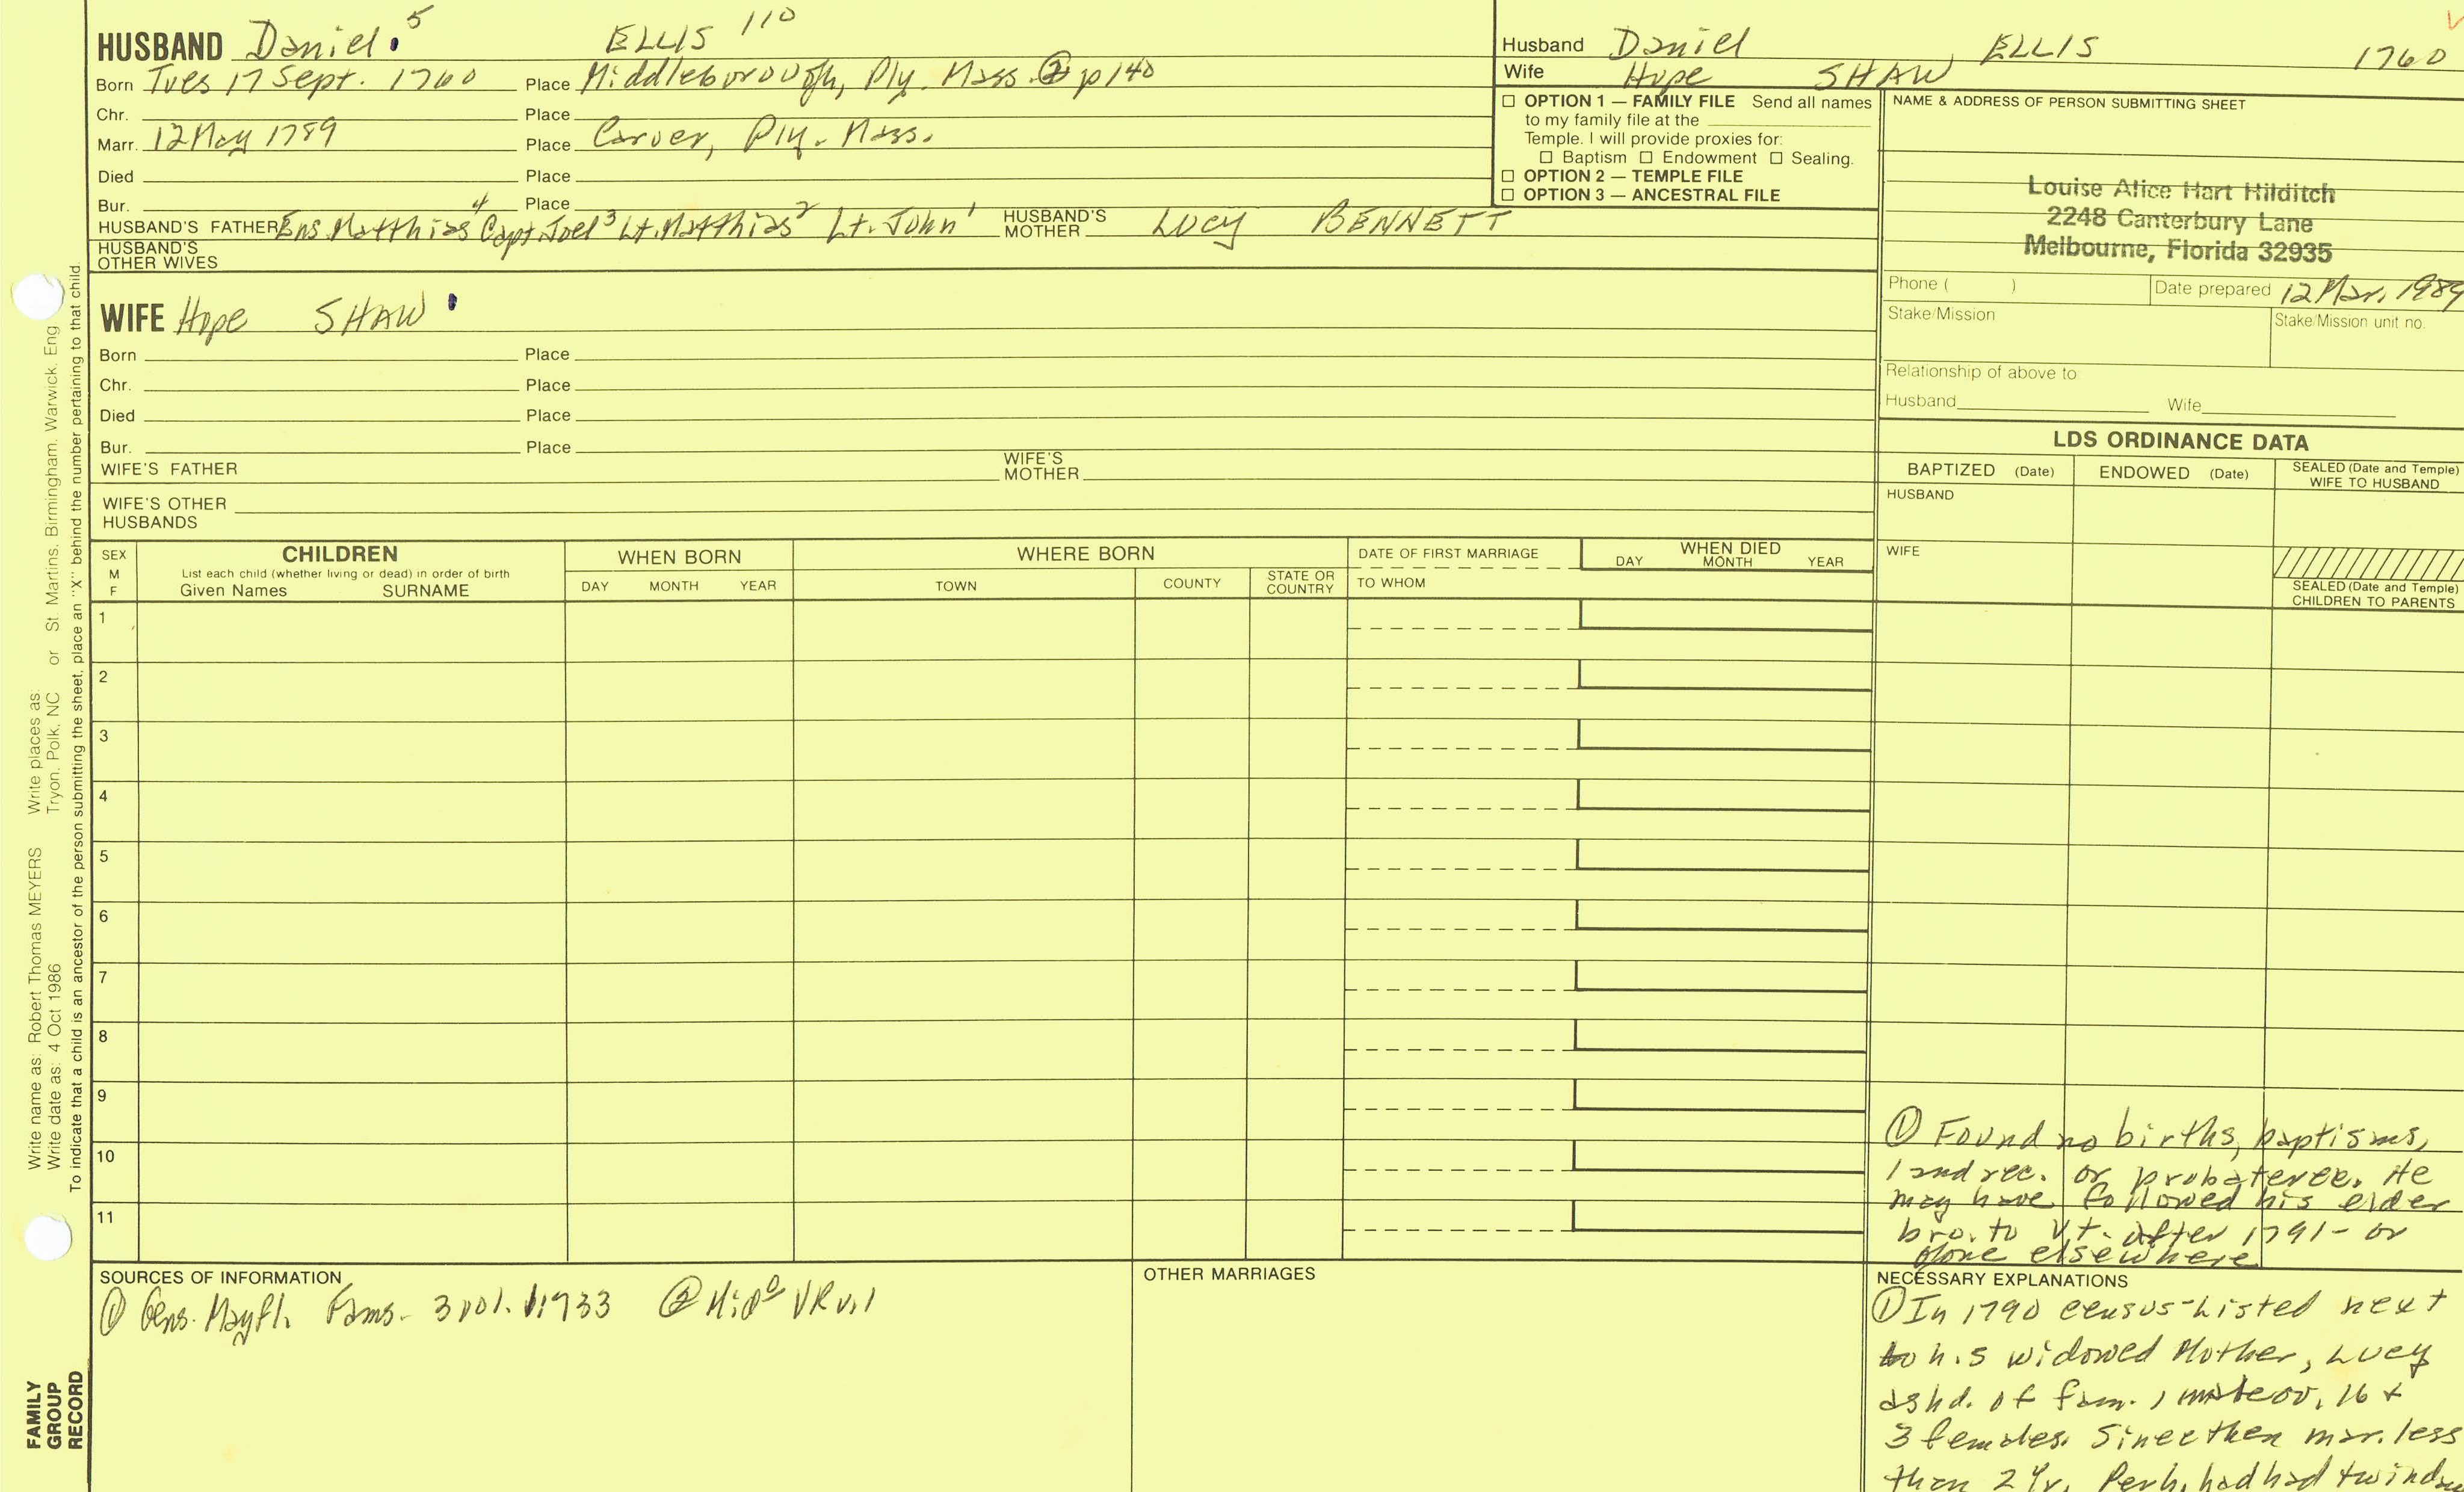 HUSBAND Daniel 5 ELLIS 110
Born Tues 17 Sept. 1760 Place Middleborough, Ply. Mass. ② p 140
Chr. Place
Marr. 12 May 1789 Place Carver, Ply. Mass.
Died Place
Bur. Place
HUSBAND'S FATHER Ens. Matthias 4 Capt. Joel 3 Lt. Matthias 2 Lt. John 1 HUSBAND'S MOTHER Lucy BENNETT
HUSBAND'S OTHER WIVES
WIFE Hope SHAW
Born Place
Chr. Place
Died Place
Bur. Place
WIFE'S FATHER WIFE'S MOTHER
WIFE'S OTHER HUSBANDS
Husband Daniel ELLIS 1760
Wife Hope SHAW
☐ OPTION 1 — FAMILY FILE Send all names
to my family file at the
Temple. I will provide proxies for:
☐ Baptism ☐ Endowment ☐ Sealing.
☐ OPTION 2 — TEMPLE FILE
☐ OPTION 3 — ANCESTRAL FILE
NAME & ADDRESS OF PERSON SUBMITTING SHEET
Louise Alice Hart Hilditch
2248 Canterbury Lane
Melbourne, Florida 32935
Phone ( ) Date prepared 12 Mar. 1989
Stake/Mission Stake/Mission unit no.
Relationship of above to
Husband Wife
LDS ORDINANCE DATA
BAPTIZED (Date) ENDOWED (Date) SEALED (Date and Temple) WIFE TO HUSBAND
HUSBAND
WIFE
SEALED (Date and Temple) CHILDREN TO PARENTS
SEX M F
CHILDREN
List each child (whether living or dead) in order of birth
Given Names SURNAME
WHEN BORN
DAY MONTH YEAR
WHERE BORN
TOWN COUNTY STATE OR COUNTRY
DATE OF FIRST MARRIAGE
TO WHOM
WHEN DIED
DAY MONTH YEAR
1
2
3
4
5
6
7
8
9
10
11
① Found no births, baptisms,
land rec. or probate rec. He
may have followed his elder
bro. to Vt. after 1791 - or
gone elsewhere
SOURCES OF INFORMATION
① Gens. Mayfl. Fams. 3 vol. 1:733 ② Mid° VR v.1
OTHER MARRIAGES
NECESSARY EXPLANATIONS
① In 1790 census - Listed next
to his widowed Mother, Lucy
as hd. of fam. 1 male ov. 16 +
3 females. Since then mar. less
than 2 Yr. Perh. had had twin
Write name as: Robert Thomas MEYERS Write places as:
Write date as: 4 Oct 1986 Tryon, Polk, NC or St Martins, Birmingham, Warwick, Eng
To indicate that a child is an ancestor of the person submitting the sheet, place an "X" behind the number pertaining to that child.
FAMILY
GROUP
RECORD